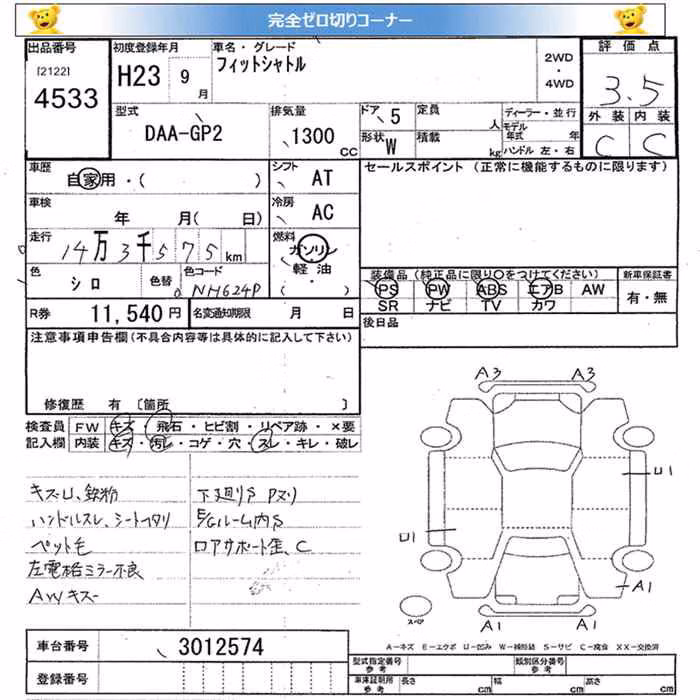 完全ゼロ切りコーナー
出品番号
[2122]
4533
初度登録年月
H23 9 月
車名・グレード
フィットシャトル
2WD
・
4WD
評価点
3.5
外装 内装
C C
型式
DAA-GP2
排気量
1300 CC
ドア 5
形状 W
定員 人
積載 kg
ディーラー・並行
モデル年式 年
ハンドル 左・右
車歴
自家用・( )
シフト
AT
セールスポイント (正常に機能するものに限ります)
車検
年 月( 日)
冷房
AC
走行
14万3千575km
燃料
ガソリン
軽油
・( )
色
シロ
色替
色コード
NH624P
装備品(純正品に限り○をつけてください)
PS PW ABS エアB AW
SR ナビ TV カワ
新車保証書
有・無
R券 11,540円
名変通知期限 月 日
後日品
注意事項申告欄(不具合内容等は具体的に記入して下さい)
修復歴 有 〔箇所 〕
検査員記入欄
FW キズ・飛石・ヒビ割・リペア跡・×要
内装 キズ・汚レ・コゲ・穴・スレ・キレ・破レ
キズU、鉄粉
ハンドルスレ、シートイタミ
ペット毛
左電格ミラー不良
AWキズ
下廻りS Pヌリ
E/Gルーム内S
ロアサポート歪、C
A3 A3
U1
U1
A1
A1 A1
スペア
A-キズ E-エクボ U-凹み W-補修跡 S-サビ C-腐食 XX-交換済
車台番号 3012574
登録番号
型式指定番号 参考
類別区分番号 参考
車庫証明用 参考
長さ cm 幅 cm 高さ cm